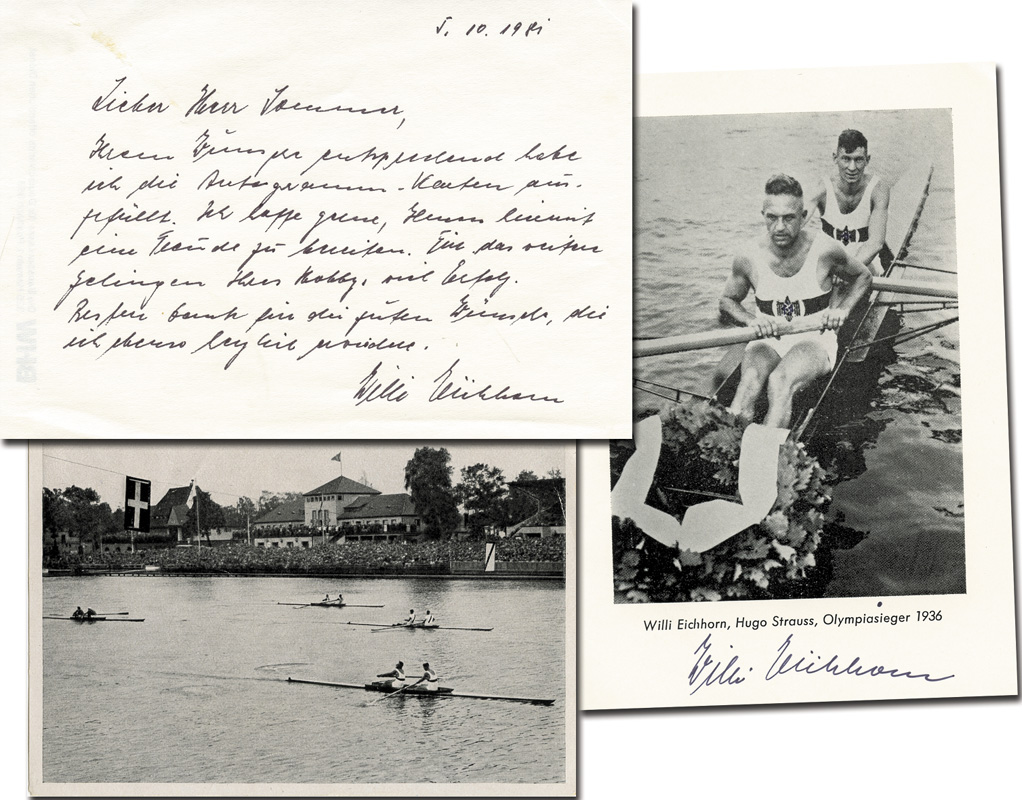 5. 10. 1981
Lieber Herr Sommer,
Ihrem Wunsche entsprechend habe
ich die Autogramm-Karten aus-
gefüllt. Ich hoffe gerne, Ihnen hiermit
eine Freude zu bereiten. Für das weitere
Gelingen Ihres Hobbys viel Erfolg.
Besten Dank für die guten Wünsche, die
ich ebenso
Willi Eichhorn
Willi Eichhorn, Hugo Strauss, Olympiasieger 1936
Willi Eichhorn
BHW